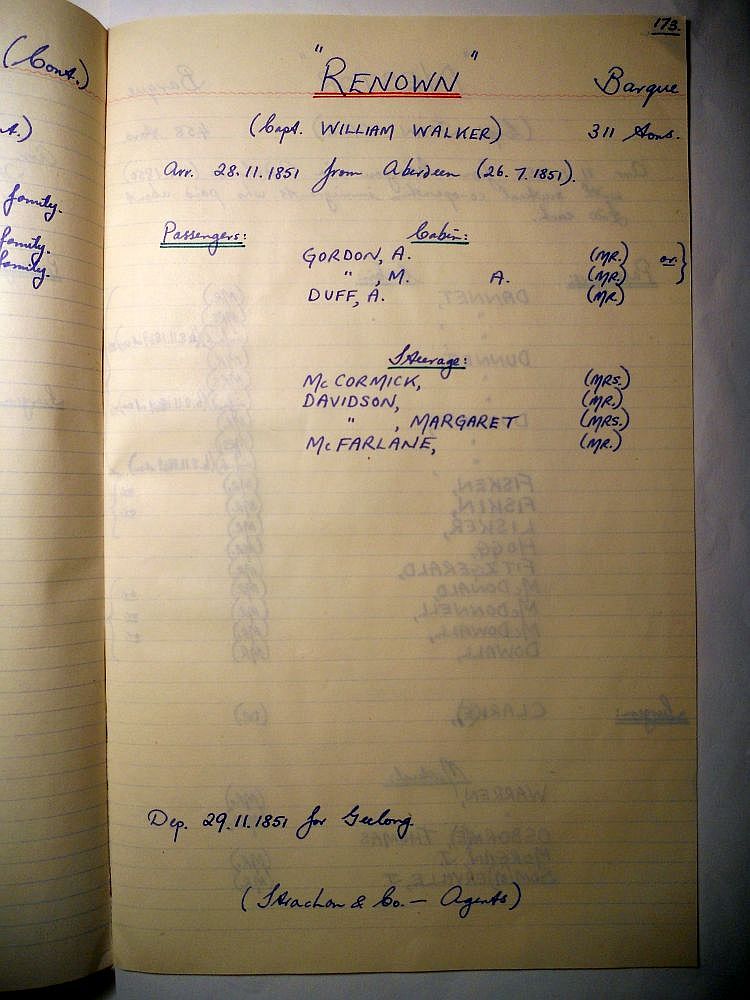 173.
(Cont.)
"RENOWN" Barque
(Capt. WILLIAM WALKER) 311 tons.
Arr. 28.11.1851 from Aberdeen (26.7.1851).
Passengers: Cabin:
GORDON, A. (MR.)
" , M. A. (MR.) or }
DUFF, A. (MR)
Steerage:
McCORMICK, (MRS.)
DAVIDSON, (MR.)
" , MARGARET (MRS.)
McFARLANE, (MR.)
Dep. 29.11.1851 for Geelong.
(Strachan & Co. — Agents)
family.
family.
family.